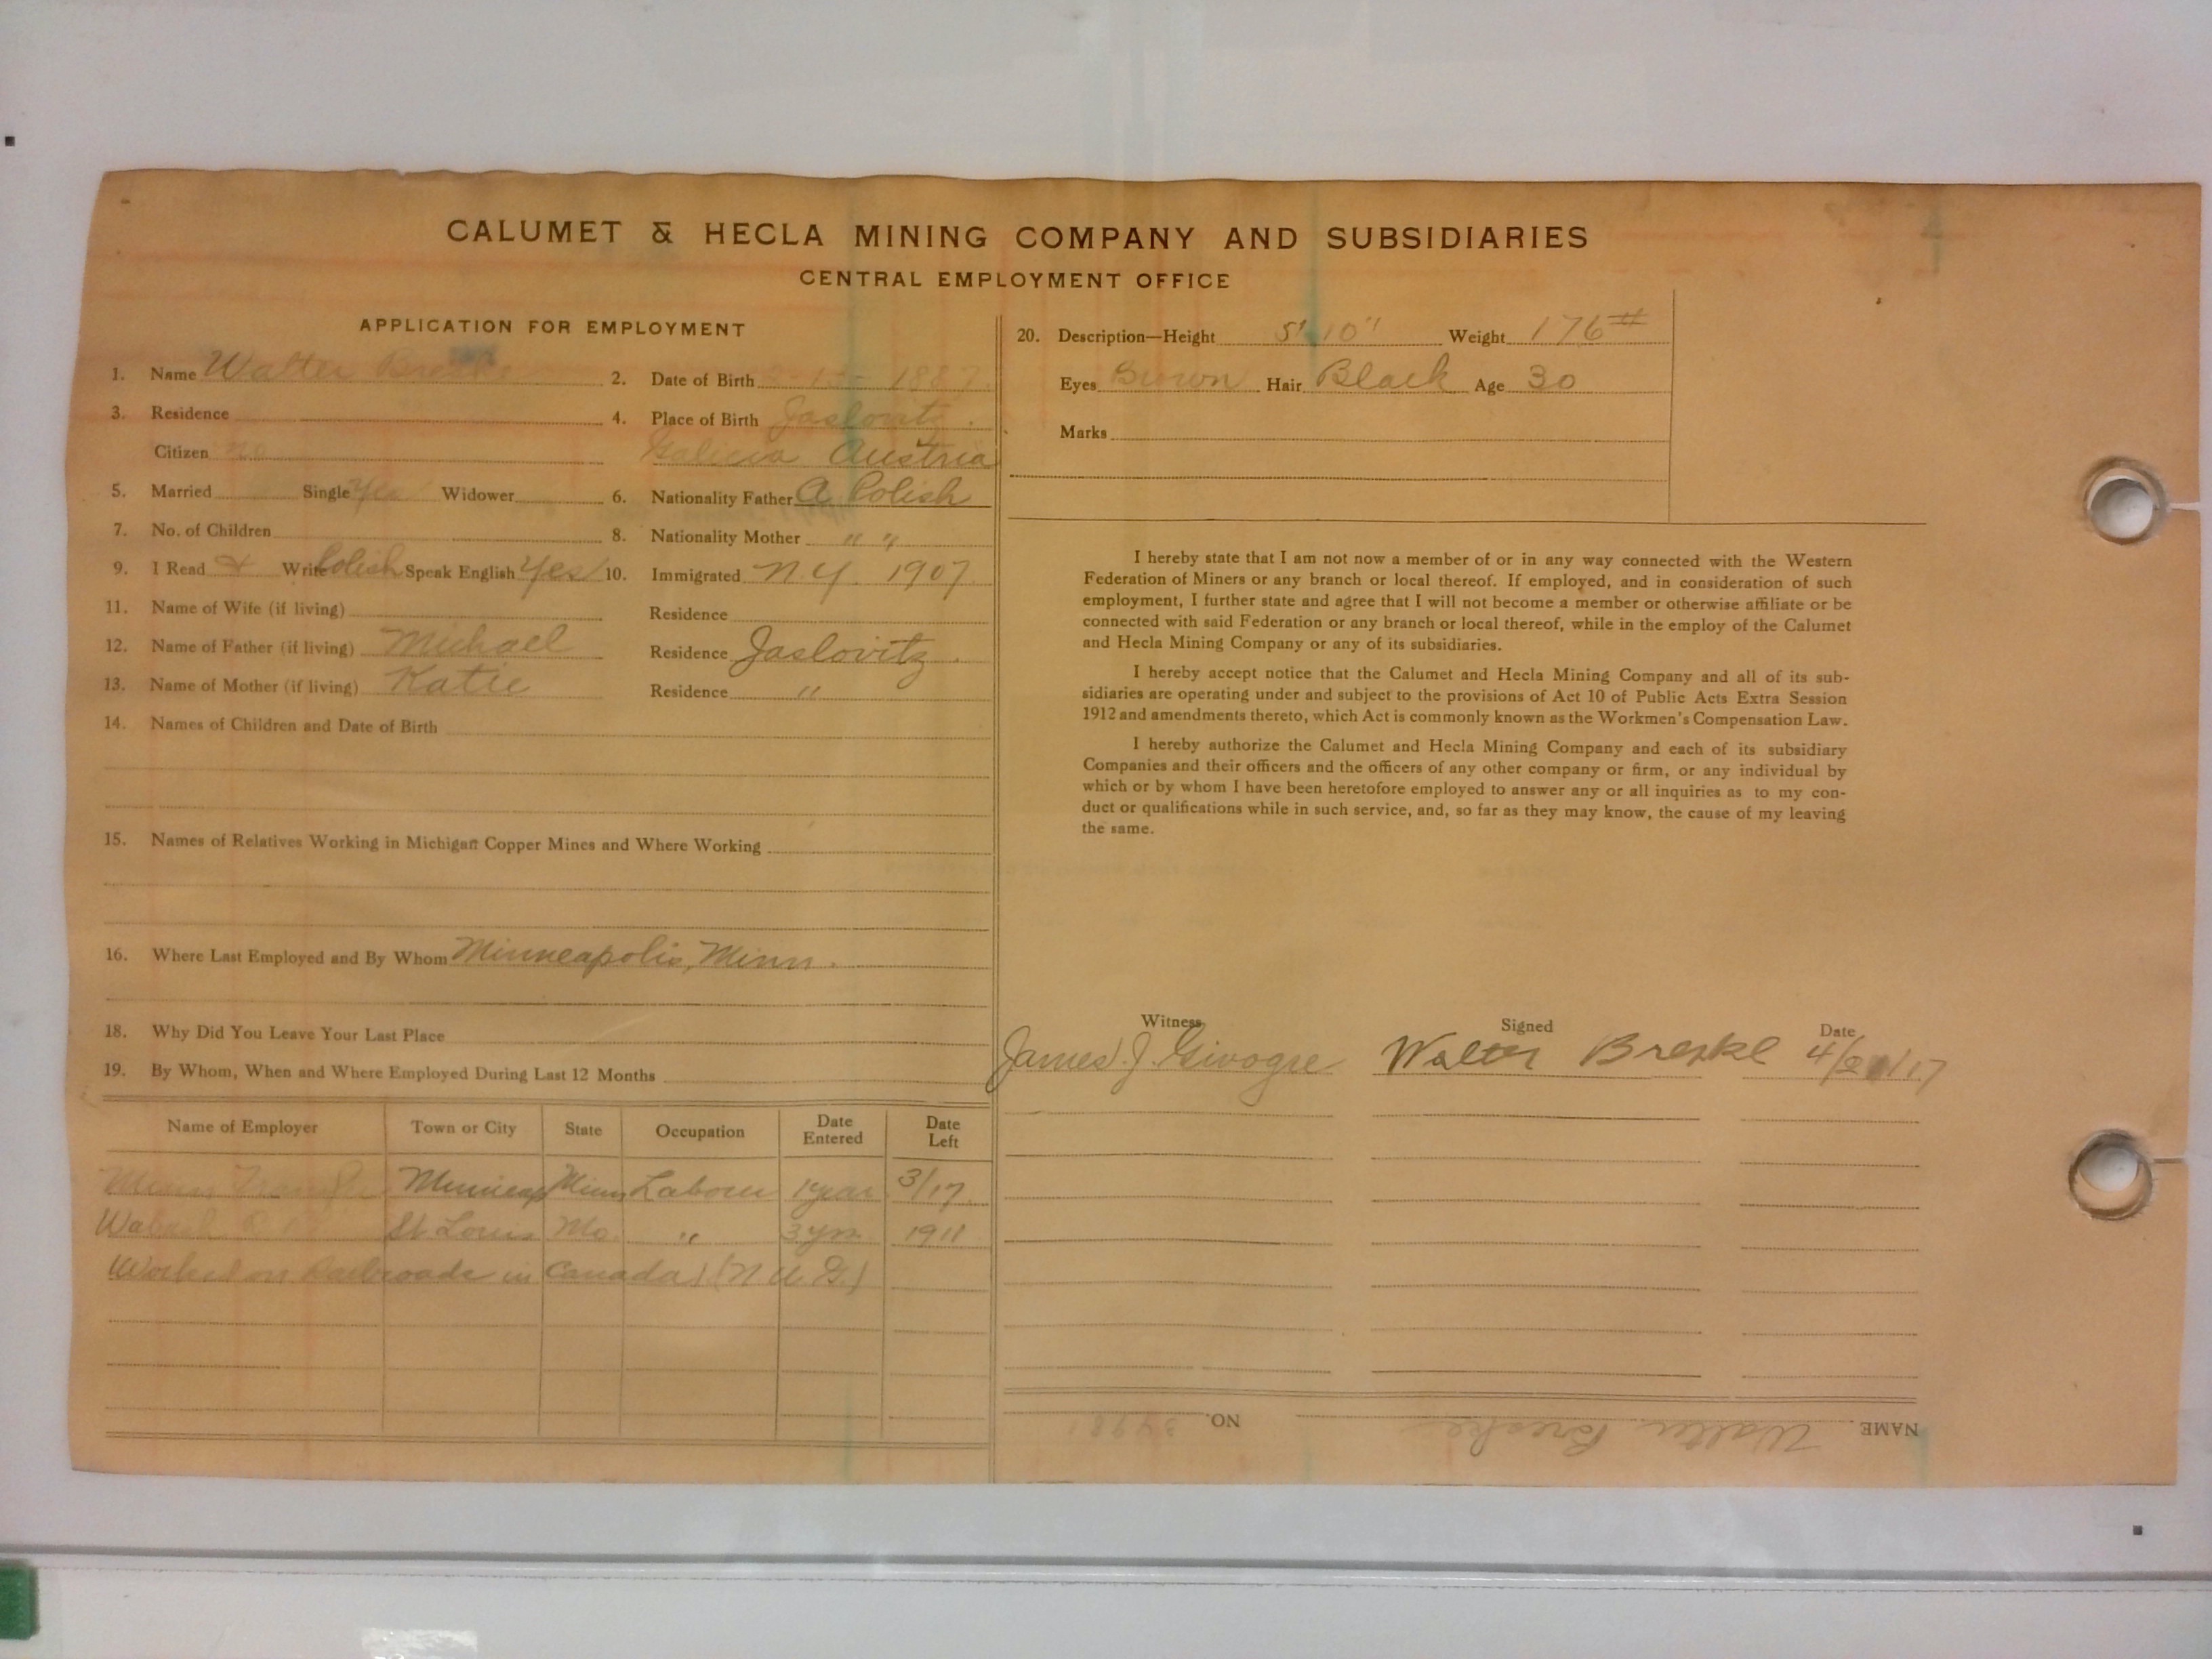 CALUMET & HECLA MINING COMPANY AND SUBSIDIARIES
CENTRAL EMPLOYMENT OFFICE
APPLICATION FOR EMPLOYMENT
1. Name Walter
2. Date of Birth 1887
3. Residence
4. Place of Birth Jaslovitz.
Citizen no
Galicia Austria
5. Married Single Yes Widower
6. Nationality Father A Polish
7. No. of Children
8. Nationality Mother " "
9. I Read & Write Polish Speak English Yes
10. Immigrated N.Y. 1907
11. Name of Wife (if living) Residence
12. Name of Father (if living) Michael Residence Jaslovitz.
13. Name of Mother (if living) Katie Residence "
14. Names of Children and Date of Birth
15. Names of Relatives Working in Michigan Copper Mines and Where Working
16. Where Last Employed and By Whom Minneapolis, Minn.
18. Why Did You Leave Your Last Place
19. By Whom, When and Where Employed During Last 12 Months
Name of Employer Town or City State Occupation Date Entered Date Left
Minn Transfer Minneap Minn Laborer 1 year 3/17
Wabash St Louis Mo. " 3 yrs. 1911
Worked on Railroads in Canada
20. Description—Height 5' 10" Weight 176#
Eyes Brown Hair Black Age 30
Marks
I hereby state that I am not now a member of or in any way connected with the Western
Federation of Miners or any branch or local thereof. If employed, and in consideration of such
employment, I further state and agree that I will not become a member or otherwise affiliate or be
connected with said Federation or any branch or local thereof, while in the employ of the Calumet
and Hecla Mining Company or any of its subsidiaries.
I hereby accept notice that the Calumet and Hecla Mining Company and all of its sub-
sidiaries are operating under and subject to the provisions of Act 10 of Public Acts Extra Session
1912 and amendments thereto, which Act is commonly known as the Workmen's Compensation Law.
I hereby authorize the Calumet and Hecla Mining Company and each of its subsidiary
Companies and their officers and the officers of any other company or firm, or any individual by
which or by whom I have been heretofore employed to answer any or all inquiries as to my con-
duct or qualifications while in such service, and, so far as they may know, the cause of my leaving
the same.
Witness Signed Date
James J. Givogre Walter Breske
NAME Walter Breske NO.